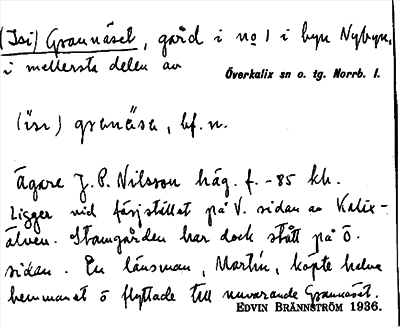 (Isi) Grannäset, gård i no 1 i byn Nybyn,
i mellersta delen av
Överkalix sn o. tg. Norrb. l.
(isi) granäsa, bf. n.
Ägare J. P. Nilsson häg. f. -85 kh.
Ligger vid färjstället på V. sidan av Kalix-
älven. Stamgården har dock stått på Ö.
sidan. En länsman, Martin, köpte halva
hemmanet o flyttade till nuvarande Grannäset.
EDVIN BRÄNNSTRÖM 1936.